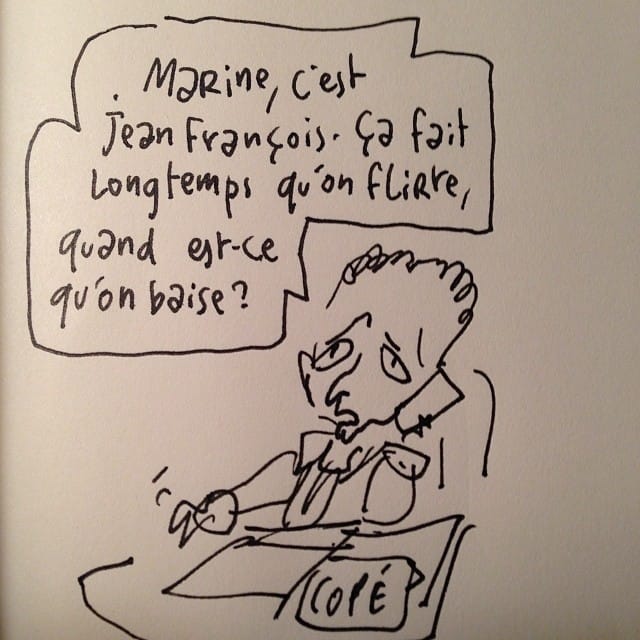 Marine, c'est
Jean François. Ça fait
Longtemps qu'on flirte,
quand est-ce
qu'on baise?
COPÉ